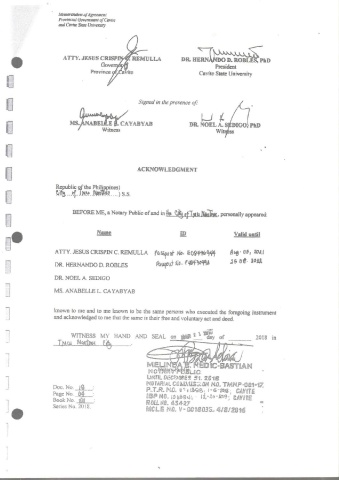 Memorandum of Agreement
Provincial Government of Cavite
and Cavite State University
ATTY. JESUS CRISPIN C. REMULLA
Governor
Province of Cavite
DR. HERNANDO D. ROBLES, PhD
President
Cavite State University
Signed in the presence of:
MS. ANABELLE L. CAYABYAB
Witness
DR. NOEL A. SEDIGO, PhD
Witness
ACKNOWLEDGMENT
Republic of the Philippines)
City of Trece Martires ) S.S.
BEFORE ME, a Notary Public of and in the City of Trece Martires, personally appeared
Name ID Valid until
ATTY. JESUS CRISPIN C. REMULLA Passport No.
DR. HERNANDO D. ROBLES Passport No.
DR. NOEL A. SEDIGO
MS. ANABELLE L. CAYABYAB
known to me and to me known to be the same persons who executed the foregoing instrument
and acknowledged to me that the same is their free and voluntary act and deed.
WITNESS MY HAND AND SEAL on day of 2018 in
NOTARY PUBLIC
UNTIL DECEMBER 31, 2018
NOTARIAL COMMISSION NO.
P.T.R. NO. CAVITE
IBP NO. CAVITE
ROLL NO.
MCLE NO. V - 4/8/2016
Doc. No.
Page No.
Book No.
Series No. 2018.